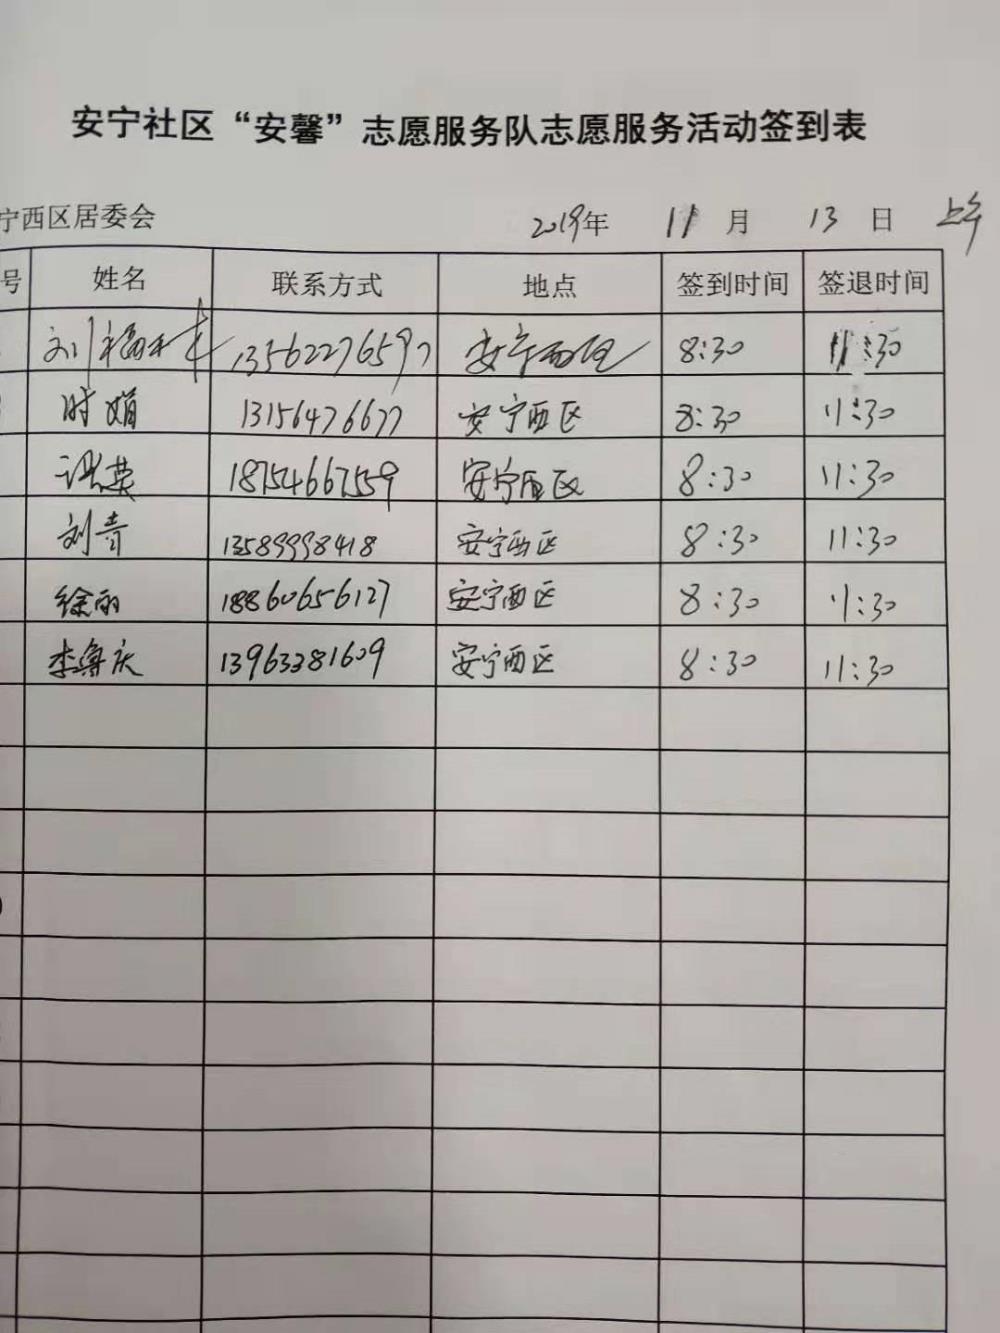 安宁社区“安馨”志愿服务队志愿服务活动签到表
宁西区居委会 2019年 11月 13日 上午
号 姓名 联系方式 地点 签到时间 签退时间
刘福 13562276597 安宁西区 8:30 11:30
时娟 13156476677 安宁西区 8:30 11:30
张英 18754667559 安宁西区 8:30 11:30
刘青 13589998418 安宁西区 8:30 11:30
徐丽 18860656127 安宁西区 8:30 11:30
李庆 13963381609 安宁西区 8:30 11:30